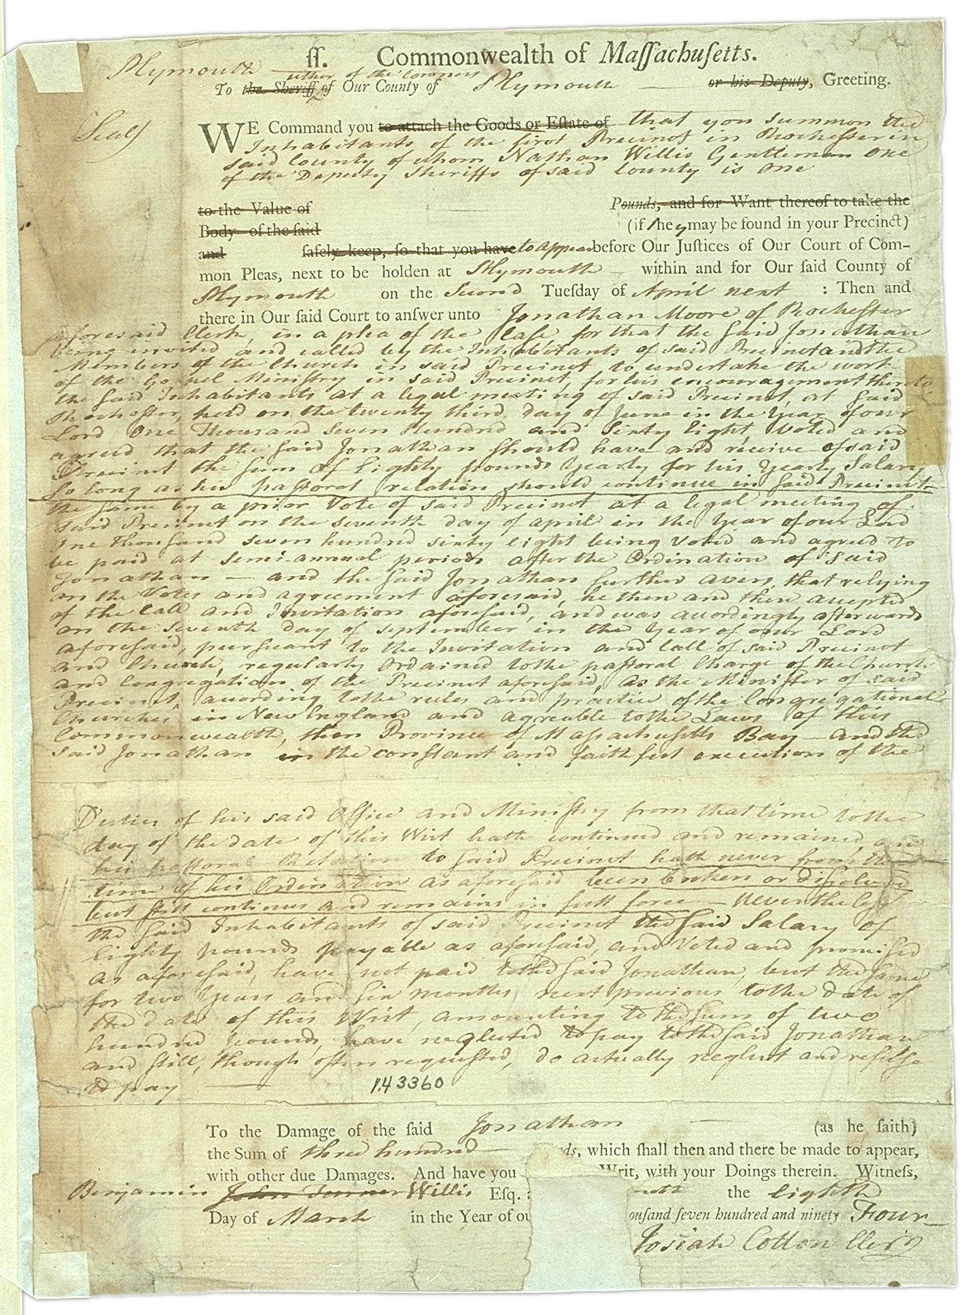 Plymouth ſſ. Commonwealth of Maſſachuſetts.
either of the Coroners
To the Sheriff of Our County of Plymouth or his Deputy, Greeting.
Seal
WE Command you to attach the Goods or Eſtate of that you summon the
Inhabitants of the first Precinct in Rochester in
said County of whom Nathan Willis Gentleman One
of the Deputy Sheriffs of said County is One
to the Value of Pounds, and for Want thereof to take the
Body of the ſaid (if they may be found in your Precinct)
and ſafely keep, ſo that you have to appear before Our Juſtices of Our Court of Com-
mon Pleas, next to be holden at Plymouth within and for Our ſaid County of
Plymouth on the Second Tueſday of April next : Then and
there in Our ſaid Court to anſwer unto Jonathan Moore of Rochester
aforesaid Clerk in a plea of the Case for that the said Jonathan
being invited and called by the Inhabitants of said Precinct and the
Members of the Church in said Precinct to undertake the work
of the Gospel Ministry in said Precinct, for his encouragement thereto
the said Inhabitants at a legal meeting of said Precinct, at said
Rochester, held on the twenty third day of June in the Year of our
Lord One Thousand seven Hundred and sixty eight Voted and
agreed that the said Jonathan should have and receive of said
Precinct the sum of Eighty pounds Yearly for his Yearly Salary
so long as his pastoral relation should continue in said Precinct
the same by a prior Vote of said Precinct at a legal meeting of
said Precinct on the seventh day of april in the Year of our Lord
One thousand seven hundred sixty eight being Voted and agreed to
be paid at semi-annual periods after the Ordination of said
Jonathan — and the said Jonathan further avers that relying
on the Votes and agreement aforesaid, he then and there accepted
of the Call and Invitation aforesaid, and was accordingly afterwards
on the seventh day of September in the Year of our Lord
aforesaid, pursuant to the Invitation and Call of said Precinct
and Church, regularly Ordained to the pastoral Charge of the Church
and Congregation of the Precinct aforesaid, as the Minister of said
Precinct, according to the rules and practice of the Congregational
Churches in New England and agreable to the Laws of this
Commonwealth, then Province of Massachusetts Bay — and the
said Jonathan in the constant and faithful execution of the
Duties of his said Office and Ministry from that time to the
day of the date of this Writ hath continued and remained, and
his pastoral Relation to said Precinct hath never from the
time of his Ordination as aforesaid been broken or dissolved
but still continues and remains in full force — Nevertheless
the said Inhabitants of said Precinct the said Salary of
Eighty pounds payable as aforesaid, and Voted and promised
as aforesaid, have not paid to the said Jonathan, but the same
for two Years and six months, next previous to the date of
the date of this Writ, amounting to the sum of two
hundred pounds have neglected to pay to the said Jonathan
and still, though often requested, do actually neglect and refuse
to pay
143360
To the Damage of the ſaid Jonathan (as he ſaith)
the Sum of three hundred ds, which ſhall then and there be made to appear,
with other due Damages. And have you Writ, with your Doings therein. Witneſs,
Benjamin John Turner Willis Eſq. the eighth
Day of March in the Year of ou ouſand ſeven hundred and ninety Four
Josiah Cotton Cler